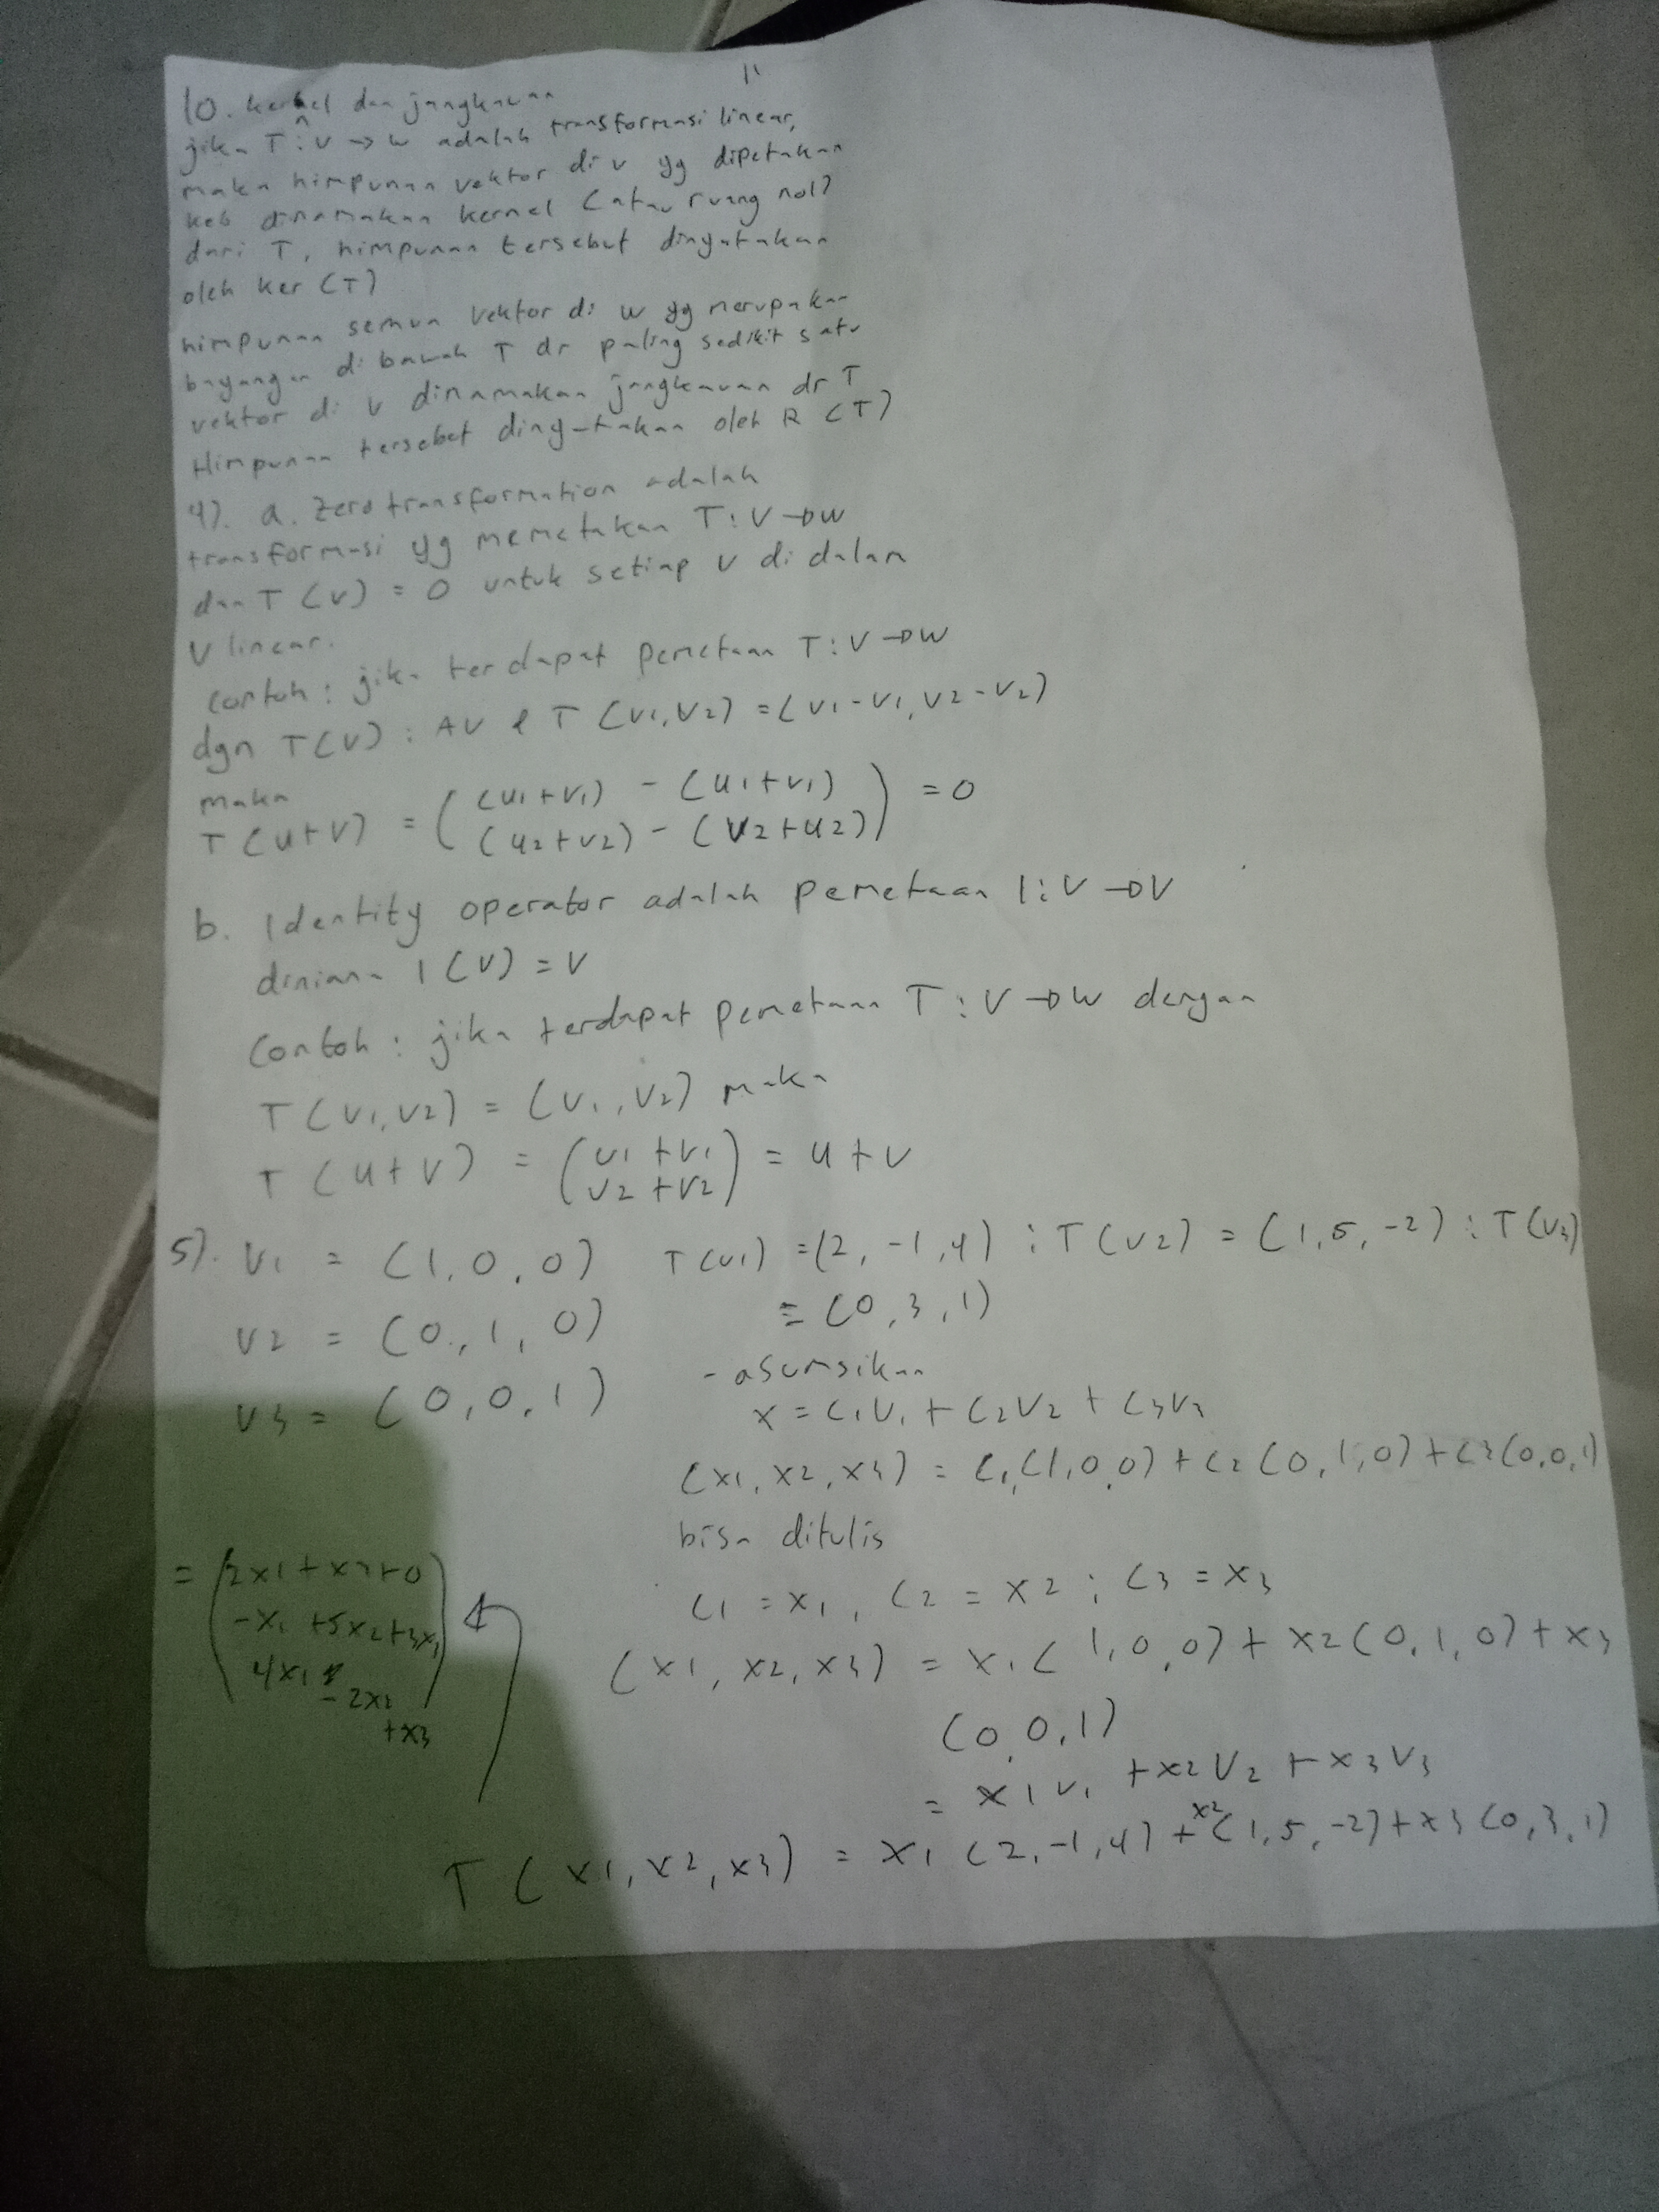 11
10. kernel dan jangkauan
jika T : V → W adalah transformasi linear,
maka himpunan vektor di v yg dipetakan
ke 0 dinamakan kernel (atau ruang nol)
dari T, himpunan tersebut dinyatakan
oleh ker (T)
himpunan semua vektor di W yg merupakan
bayangan di bawah T dr paling sedikit satu
vektor di V dinamakan jangkauan dr T
Himpunan tersebut dinyatakan oleh R (T)
4). a. Zero transformation adalah
transformasi yg memetakan T : V → W
dan T (v) = 0 untuk setiap v di dalam
V linear.
Contoh : jika terdapat pemetaan T : V → W
dgn T(v) : AV & T (v1, v2) = (v1 - v1, v2 - v2)
maka
T (u + v) = ( (u1 + v1) - (u1 + v1)
(u2 + v2) - (v2 + u2) ) = 0
b. Identity operator adalah pemetaan I : V → V
dimana I (V) = V
Contoh : jika terdapat pemetaan T : V → W dengan
T (v1, v2) = (v1, v2) maka
T (u + v) = ( u1 + v1
u2 + v2 ) = u + v
5). v1 = (1, 0, 0) T(v1) = (2, -1, 4) ; T(v2) = (1, 5, -2) ; T(v3)
= (0, 3, 1)
v2 = (0, 1, 0)
v3 = (0, 0, 1)
- asumsikan
x = c1v1 + c2v2 + c3v3
(x1, x2, x3) = c1(1, 0, 0) + c2 (0, 1, 0) + c3 (0, 0, 1)
bisa ditulis
c1 = x1, c2 = x2 ; c3 = x3
(x1, x2, x3) = x1 (1, 0, 0) + x2 (0, 1, 0) + x3
(0, 0, 1)
= x1v1 + x2v2 + x3v3
T (x1, x2, x3) = x1 (2, -1, 4) + x2 (1, 5, -2) + x3 (0, 3, 1)
= ( 2x1 + x2 + 0
-x1 + 5x2 + 3x3
4x1 - 2x2
+ x3 )